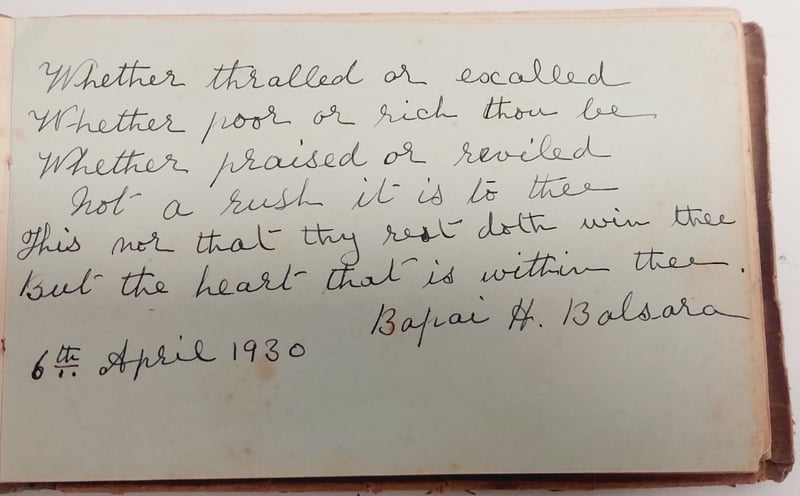 Whether thralled or exalled
Whether poor or rich thou be
Whether praised or reviled
Not a rush it is to thee
This nor that thy rest doth win thee
But the heart that is within thee.
Bapai H. Balsara
6th April 1930